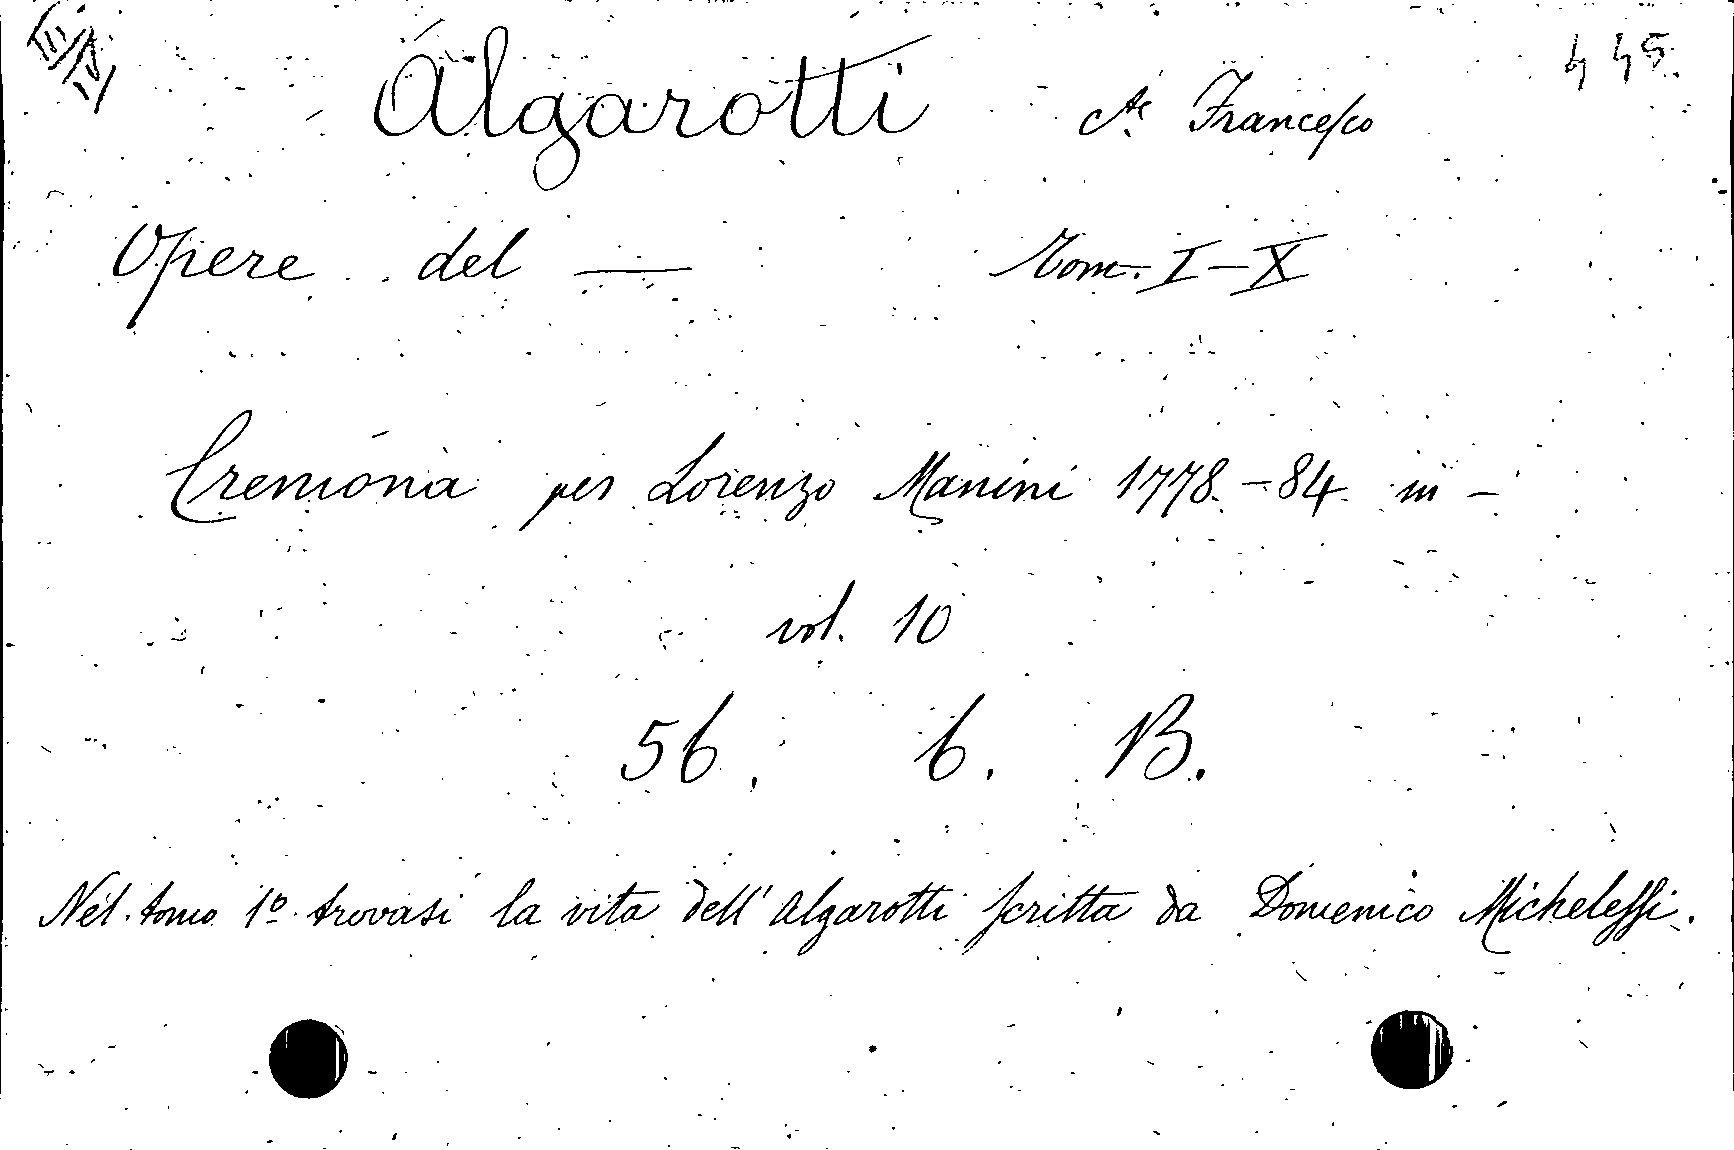 III/IV
445.
Algarotti C.te Francesco
Opere del — Tom. I-X
Cremona per Lorenzo Manini 1778-84 in -
vol. 10
56. 6. B.
Nel tomo 1º trovasi la vita dell'Algarotti scritta da Domenico Michelessi.